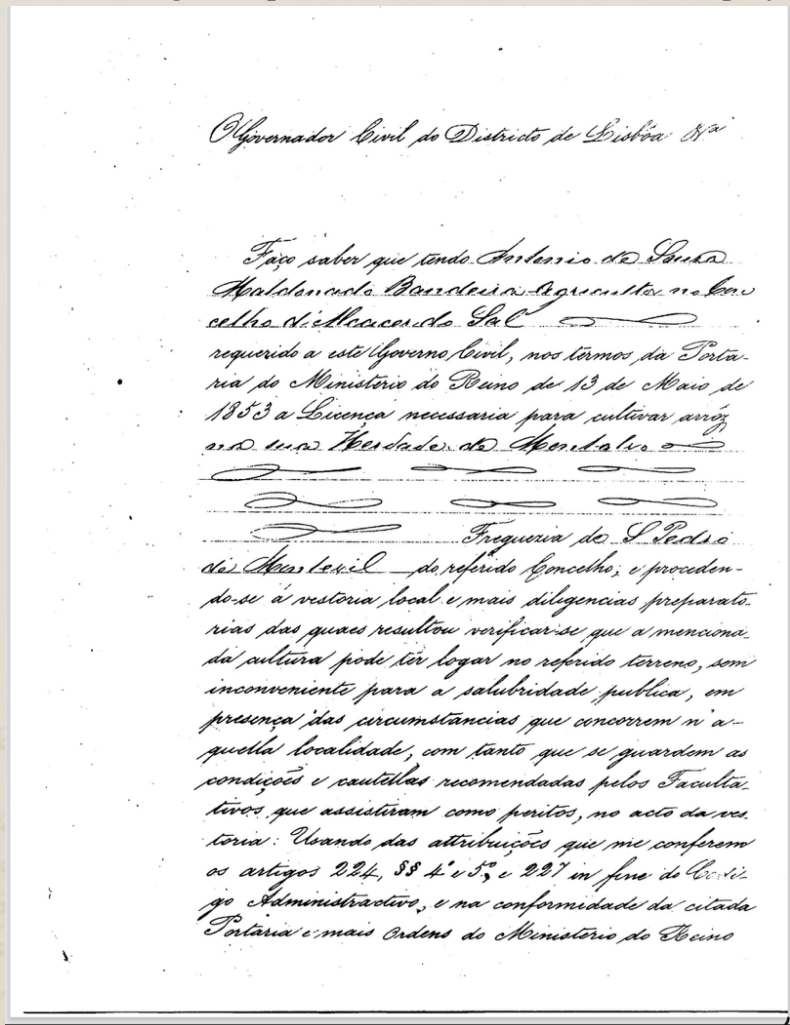 O Governador Civil do Districto de Lisbôa &ª
Faço saber que tendo Antonio de Souza
Maldonado Bandeira Agricultor no Con
celho d'Alcacer do Sal
requerido a este Governo Civil, nos termos da Porta-
ria do Ministerio do Reino de 13 de Maio de
1853 a Licença necessaria para cultivar arrôz
na sua Herdade de Montalvo
Freguezia de S Pedro
de Montevil do referido Concelho; e proceden-
do-se á vestoria local e mais diligencias preparato-
rias das quaes resultou verificar-se que a menciona-
da cultura pode têr logar no referido terreno, sem
inconveniente para a salubridade publica, em
presença das circumstancias que concorrem n'a-
quella localidade, com tanto que se guardem as
condições e cautellas recomendadas pelos Faculta-
tivos que assistiram como peritos, no acto da ves
toria: Usando das attribuições que me conferem
os artigos 224, §§ 4º e 5º, e 227 in fine do Codi-
go Administractivo, e na conformidade da citada
Portaria e mais Ordens do Ministerio do Reino